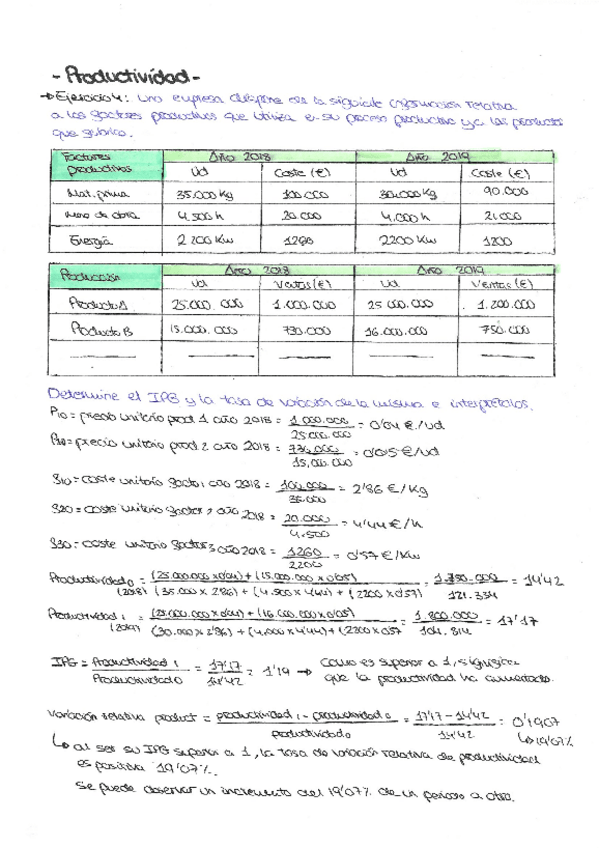 - Productividad -
→ Ejercicio 4: Una empresa dispone de la siguiente información relativa
a los factores productivos que utiliza en su proceso productivo y a los productos
que fabrica.
Factores productivos | Año 2018 | Año 2019
Ud | Coste (€) | Ud | Coste (€)
Mat. prima | 35.000 Kg | 100.000 | 30.000 Kg | 90.000
Mano de obra | 4.500 h | 20.000 | 4.000 h | 21.000
Energía | 2200 Kw | 1260 | 2200 Kw | 1200
Producción | Año 2018 | Año 2019
Ud | Ventas (€) | Ud | Ventas (€)
Producto A | 25.000.000 | 1.000.000 | 25.000.000 | 1.200.000
Producto B | 15.000.000 | 730.000 | 16.000.000 | 750.000
Determine el IPG y la tasa de variación de la misma e interprételos.
P10 = precio unitario prod 1 año 2018 = 1.000.000 / 25.000.000 = 0'04 €/ud
= precio unitario prod 2 año 2018 = / 15.000.000 = 0'05 €/ud
S10 = coste unitario factor 1 año 2018 = 100.000 / 35.000 = 2'86 €/Kg
S20 = coste unitario factor 2 año 2018 = 20.000 / 4.500 = 4'44 €/h
S30 = coste unitario factor 3 año 2018 = 1260 / 2200 = 0'57 €/Kw
Productividad 0 (2018) = (25.000.000 x 0'04) + (15.000.000 x 0'05) / (35.000 x 2'86) + (4.500 x 4'44) + (2200 x 0'57) = 1.750.000 / 121.334 = 14'42
Productividad 1 (2019) = (25.000.000 x 0'04) + (16.000.000 x 0'05) / (30.000 x 2'86) + (4.000 x 4'44) + (2200 x 0'57 = 1.800.000 / 104.814 = 17'17
IPG = Productividad 1 / Productividad 0 = 17'17 / 14'42 = 1'19 → Como es superior a 1, significa
que la productividad ha aumentado.
Variación relativa product = productividad 1 - productividad 0 / productividad 0 = 17'17 - 14'42 / 14'42 = 0'1907
↳ 19'07%
↳ al ser su IPG superior a 1, la tasa de variación relativa de productividad
es positiva 19'07%.
Se puede observar un incremento del 19'07% de un periodo a otro.